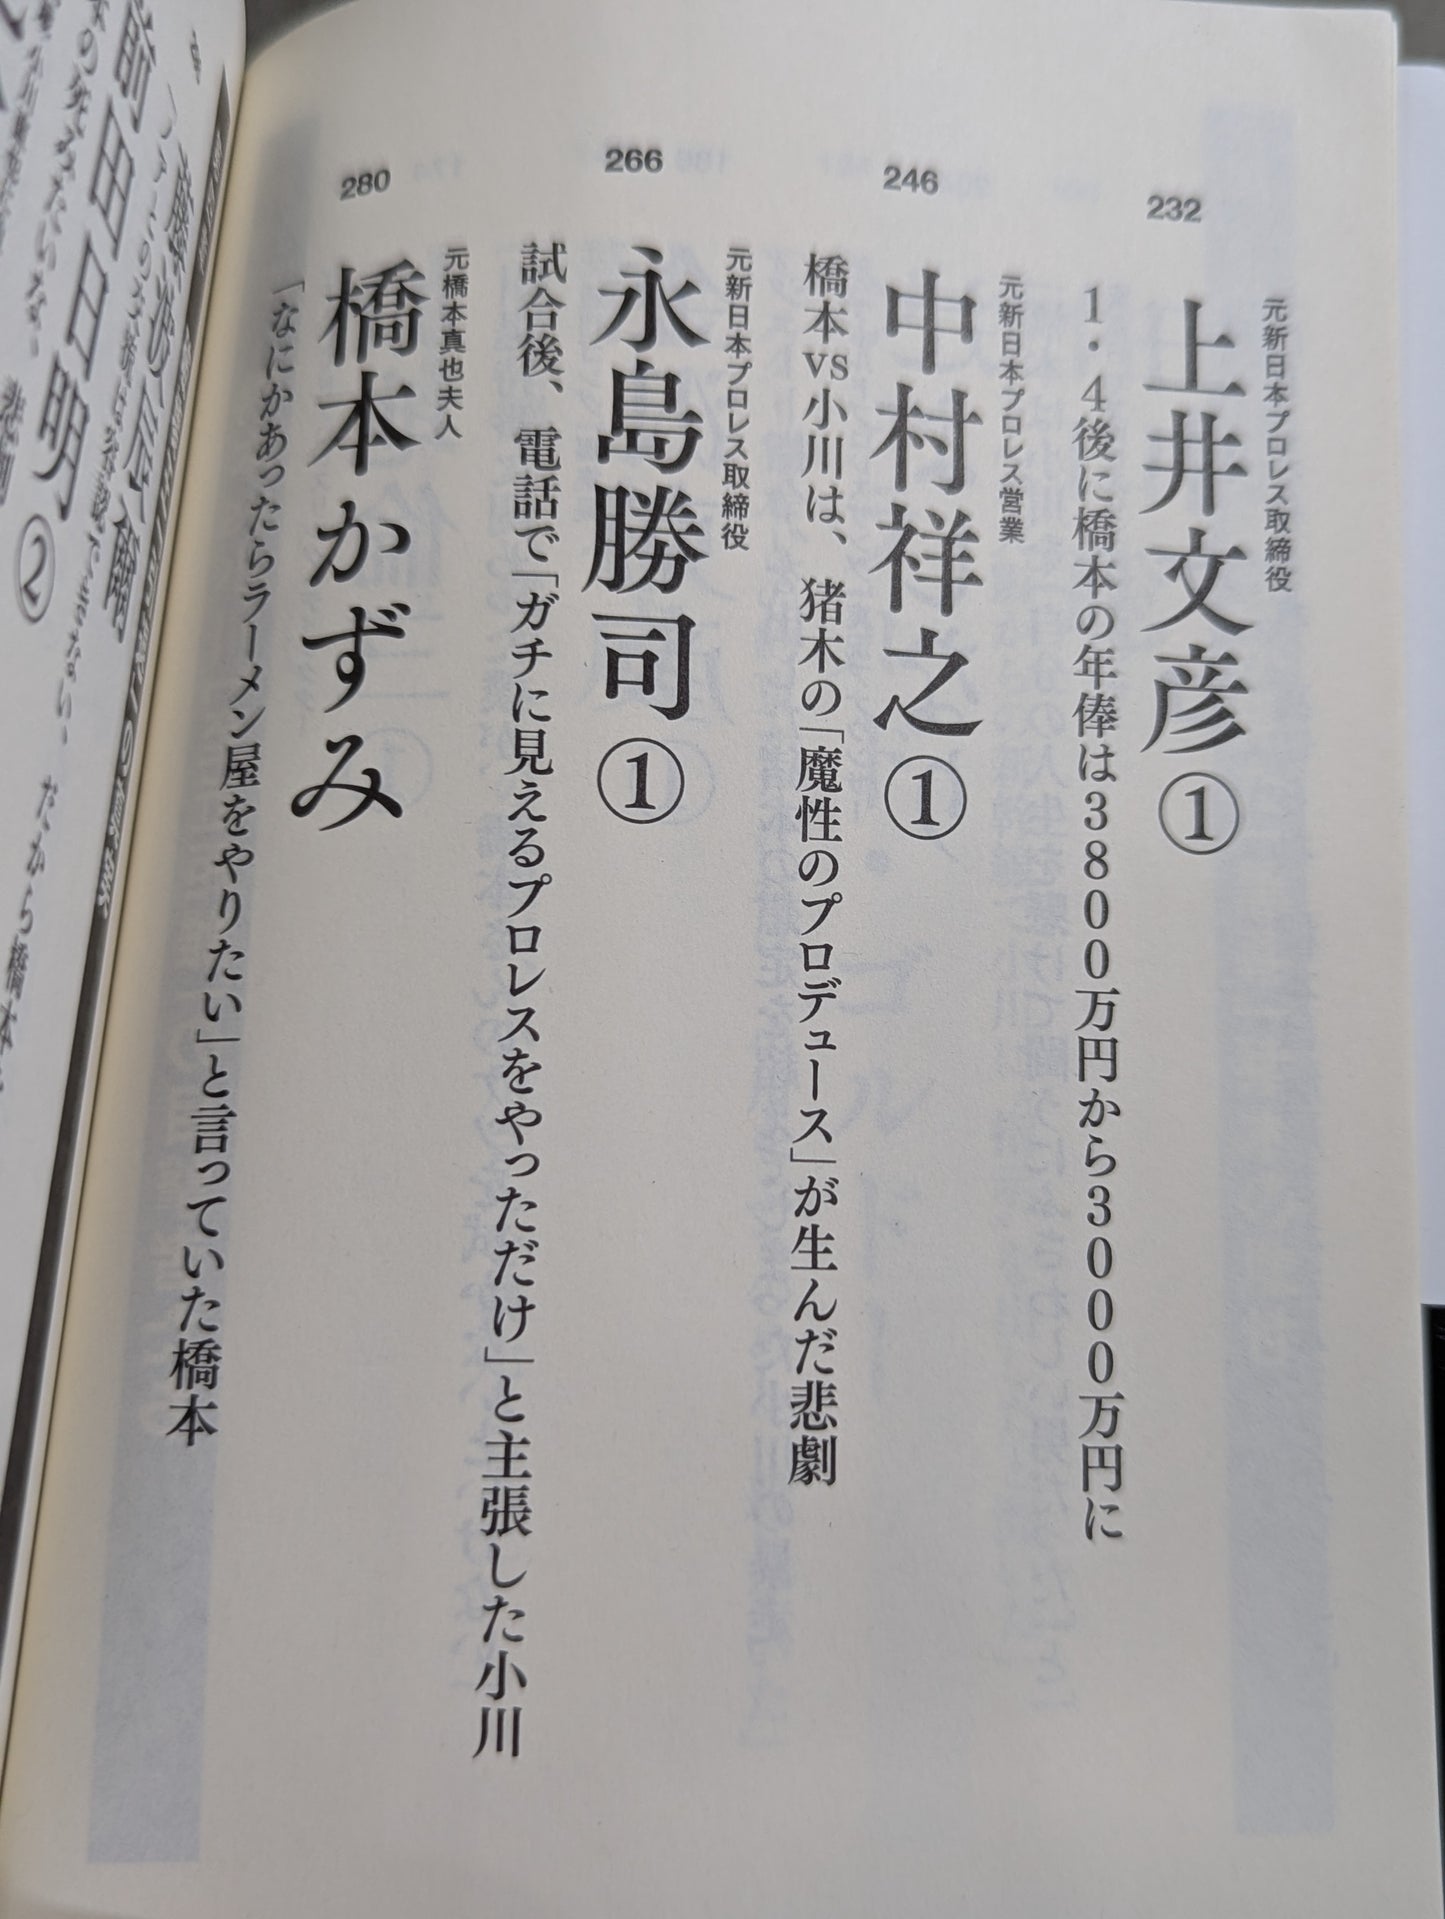 232
元新日本プロレス取締役
上井文彦①
1・4後に橋本の年俸は3800万円から3000万円に
246
元新日本プロレス営業
中村祥之①
橋本vs小川は、猪木の「魔性のプロデュース」が生んだ悲劇
266
元新日本プロレス取締役
永島勝司①
試合後、電話で「ガチに見えるプロレスをやっただけ」と主張した小川
280
元橋本真也夫人
橋本かずみ
「なにかあったらラーメン屋をやりたい」と言っていた橋本
藤波辰爾
だから橋本
前田日明②
悲劇